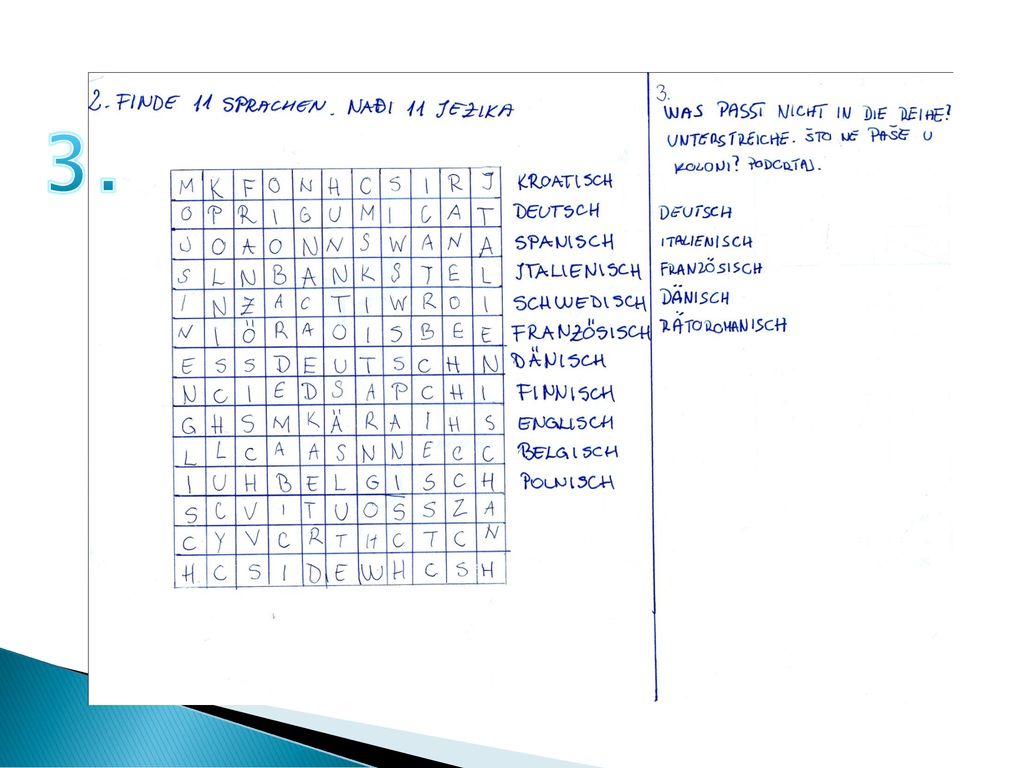 3.
2. FINDE 11 SPRACHEN. NAĐI 11 JEZIKA
M K F O N H C S I R J
O P R I G U M I C A T
J O A O N N S W A N A
S L N B A N K S T E L
I N Z A C T I W R O I
N I Ö R A O I S B E E
E S S D E U T S C H N
N C I E D S A P C H I
G H S M K Ä R A I H S
L L C A A S N N E C C
I U H B E L G I S C H
S C V I T U O S S Z A
C Y V C R T H C T C N
H C S I D E W H C S H
KROATISCH
DEUTSCH
SPANISCH
ITALIENISCH
SCHWEDISCH
FRANZÖSISCH
DÄNISCH
FINNISCH
ENGLISCH
BELGISCH
POLNISCH
3.
WAS PASST NICHT IN DIE REIHE?
UNTERSTREICHE. ŠTO NE PAŠE U
KOLONI? PODCRTAJ.
DEUTSCH
ITALIENISCH
FRANZÖSISCH
DÄNISCH
RÄTOROMANISCH